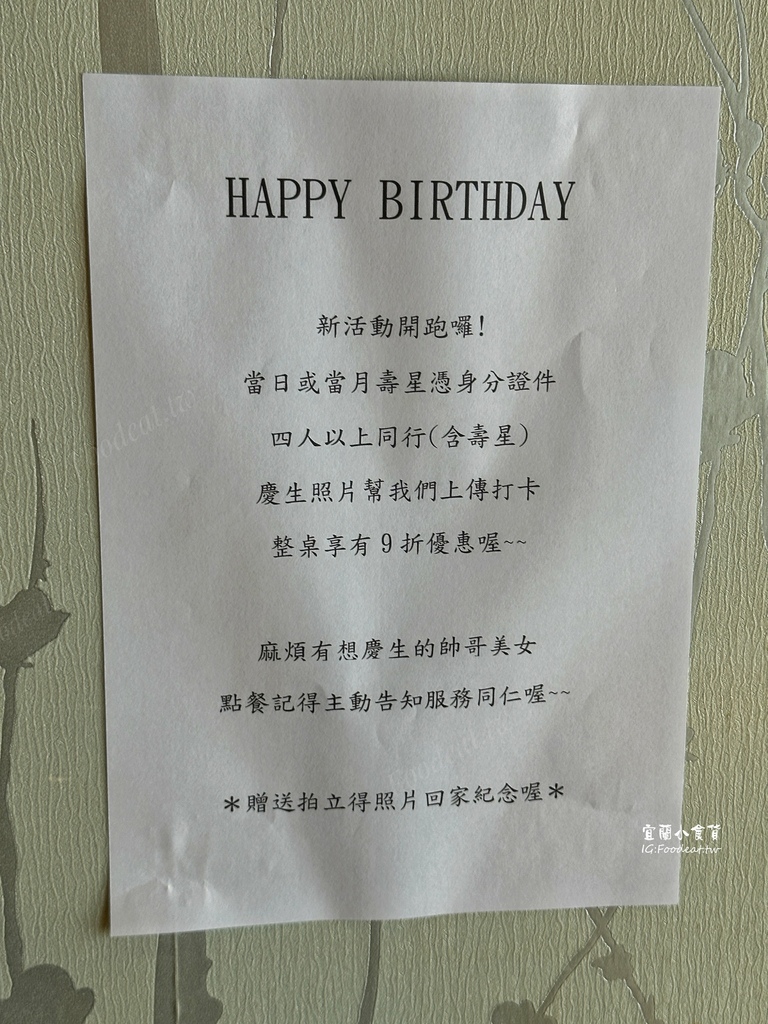 HAPPY BIRTHDAY
新活動開跑囉!
當日或當月壽星憑身分證件
四人以上同行(含壽星)
慶生照片幫我們上傳打卡
整桌享有9折優惠喔~~
麻煩有想慶生的帥哥美女
點餐記得主動告知服務同仁喔~~
*贈送拍立得照片回家紀念喔*
宜蘭小食貨
IG:Foodeat.tw